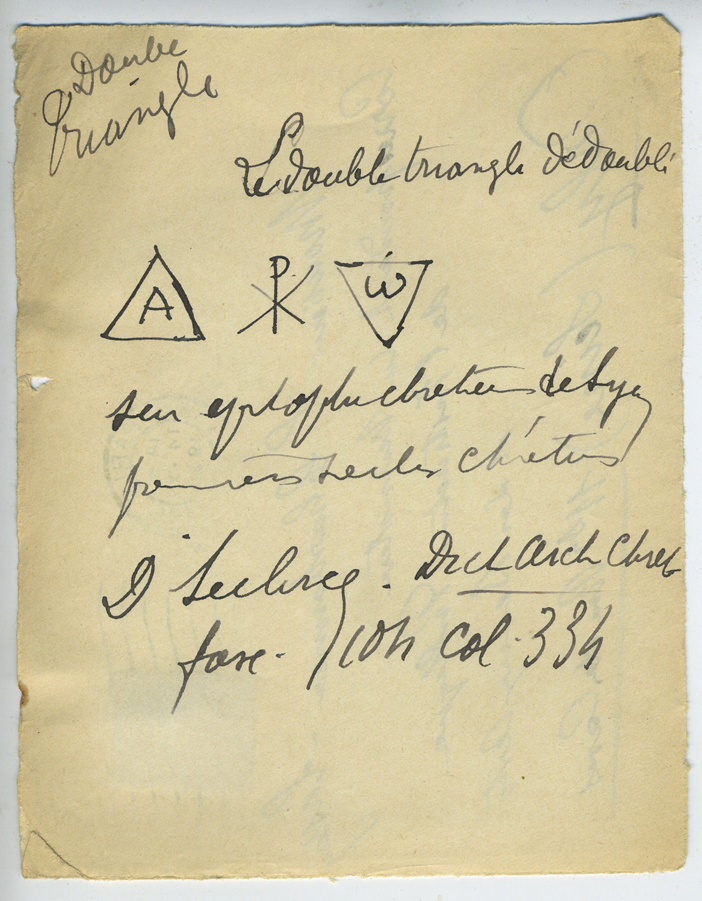 Double
triangle
Le double triangle dédoublé
A ☧ ω
sur
premiers siècles chrétiens
D Leclercq. Dict Arch Chret
fasc. 104 col. 334